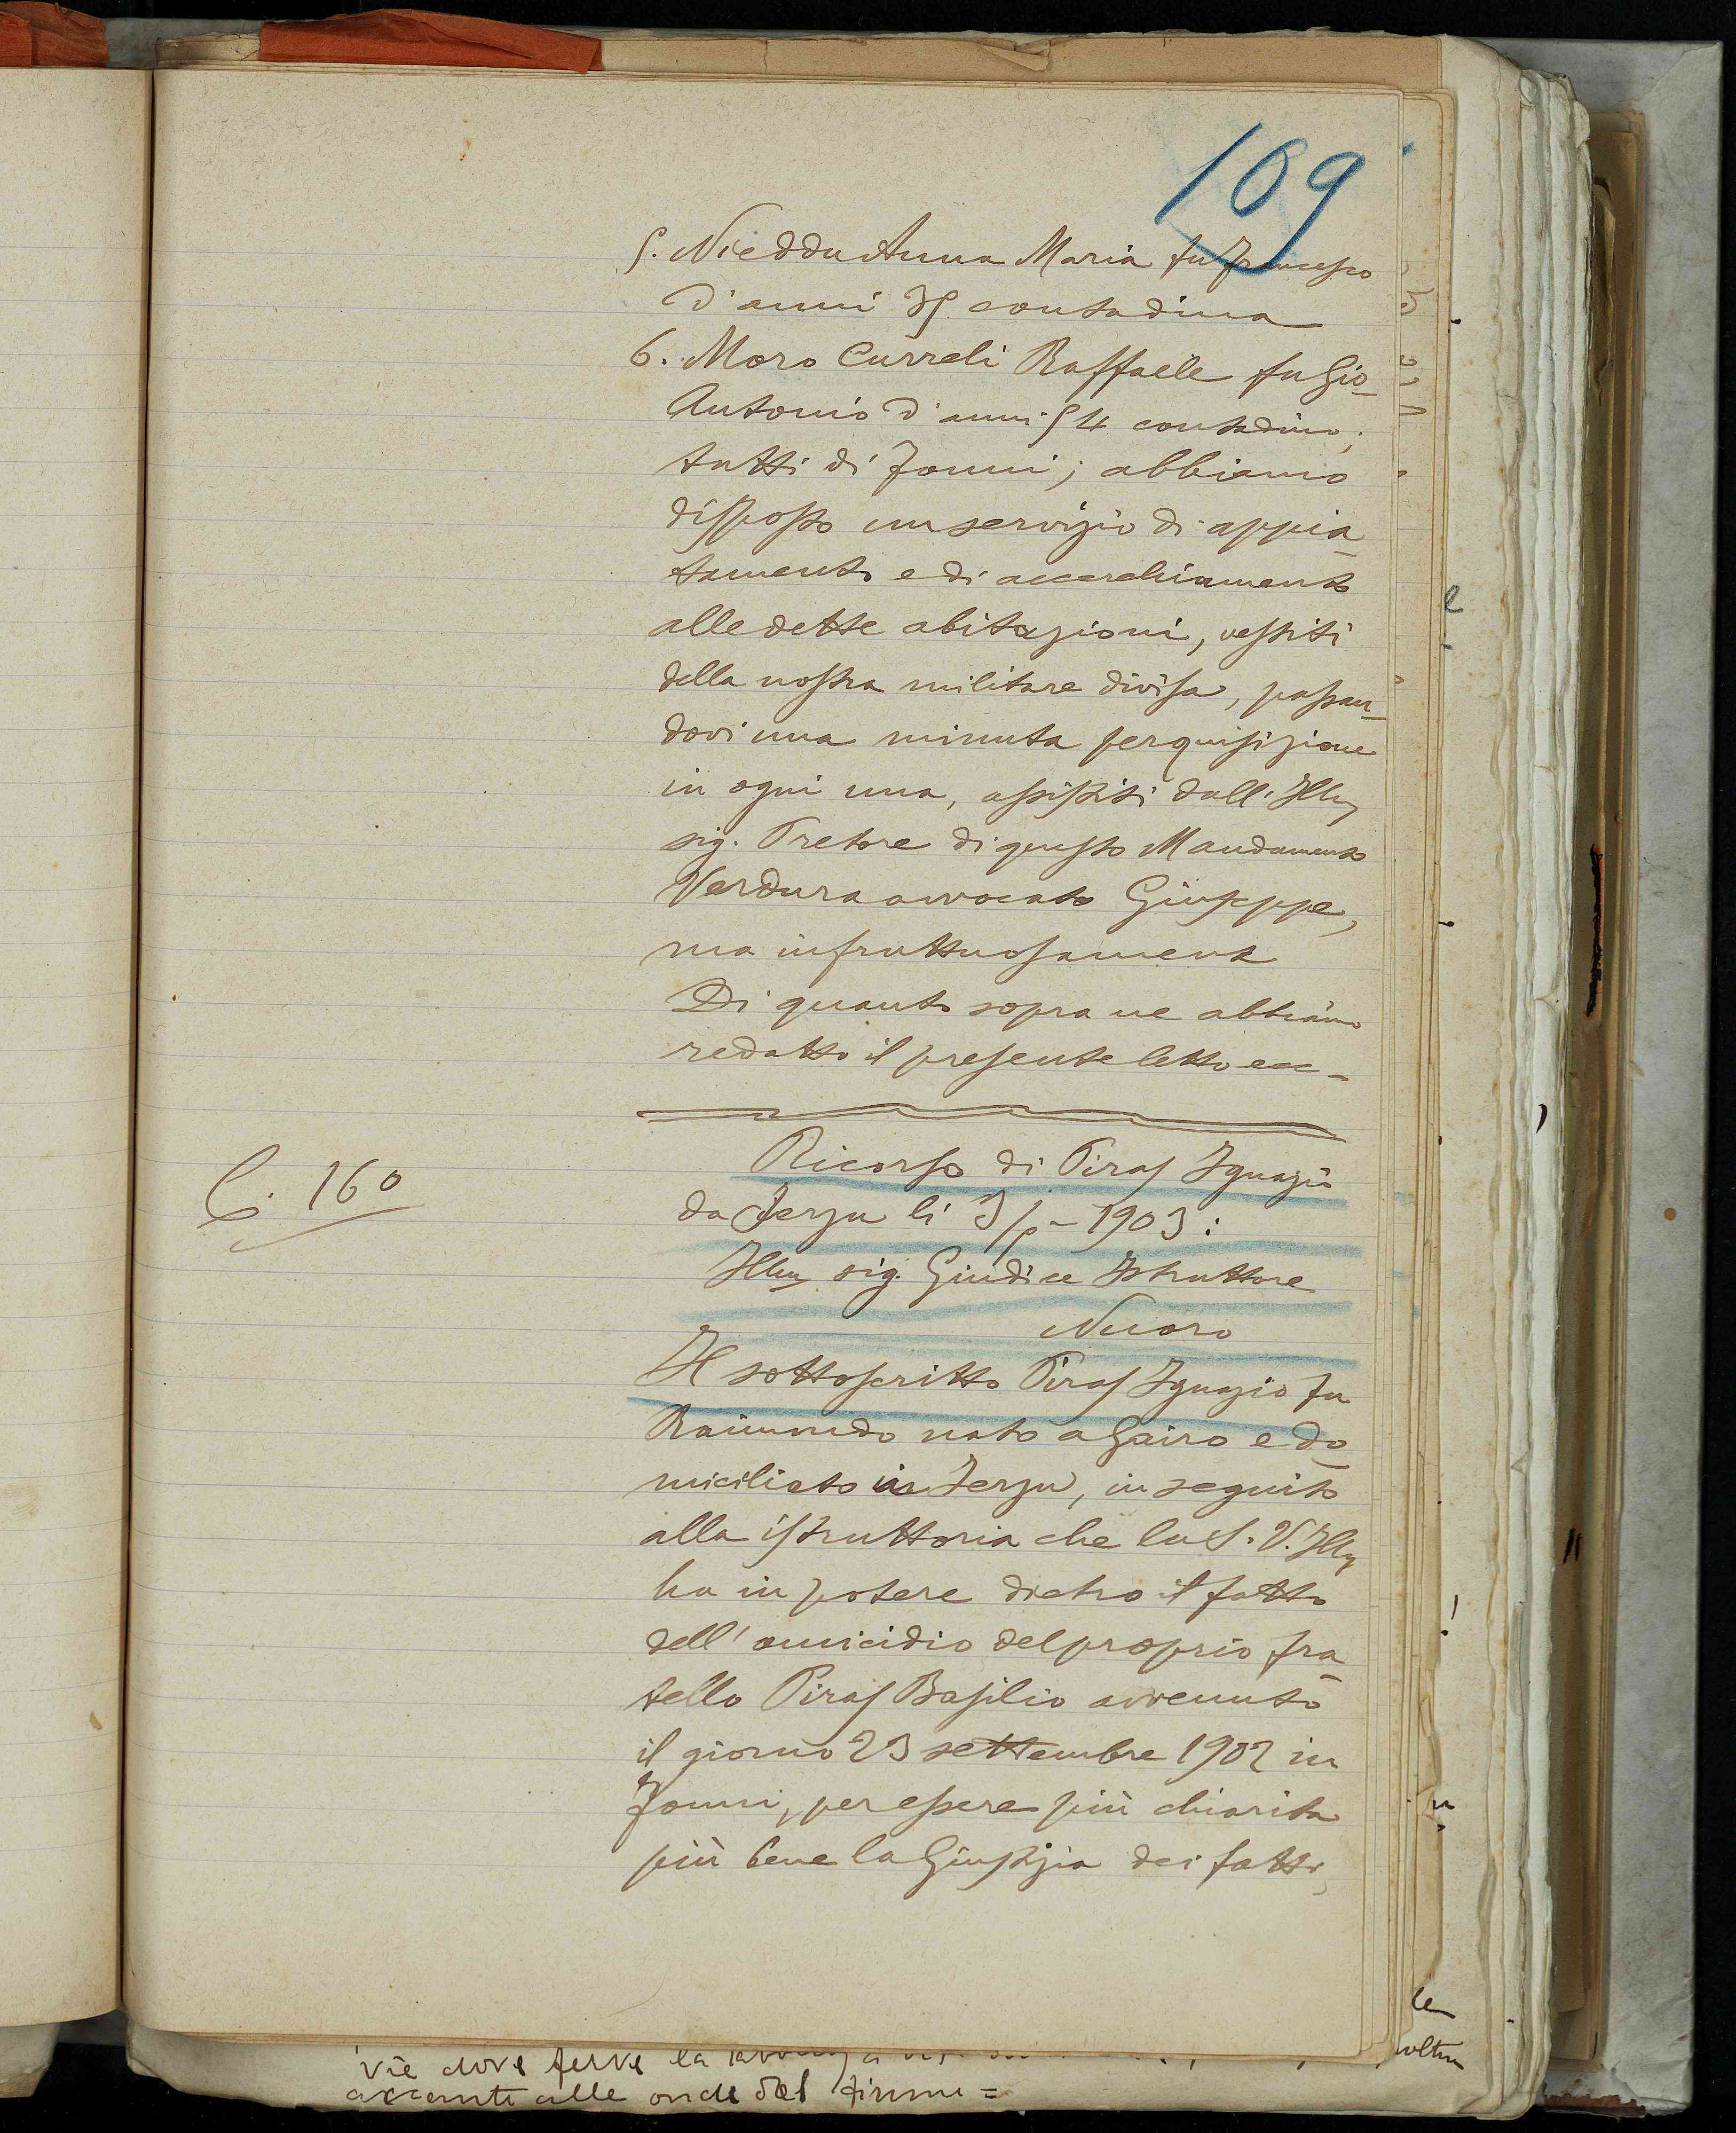 109
5. Nieddu Anna Maria fu Francesco
d'anni 35 contadina
6. Moro Curreli Raffaele fu Gio-
Antonio d'anni 54 contadino;
tutti di Jonni; abbiamo
disposto un servizio di appia-
tamento e di accerchiamento
alle dette abitazioni, vestiti
della nostra militare divisa, passan-
dovi una minuta perquisizione
in ogni una, assistiti dall'Illmo
sig. Pretore di questo Mandamento
Verdura avvocato Giuseppe,
ma infruttuosament
Di quanto sopra ne abbiamo
redatto il presente letto ecc-
Ricorso di Piras Ignazio
C. 160
da Jerzu li 3/ - 1903:
Illmo sig. Giudice Istruttore
Nuoro
Il sottoscritto Piras Ignazio fu
Raimondo nato a Gairo e do-
miciliato in Jerzu, in seguito
alla istruttoria che la S. V. Illma
ha in potere dietro il fatto
dell'omicidio del proprio fra-
tello Piras Basilio avvenuto
il giorno 23 settembre 1902 in
Jonni, per essere più chiarita
più bene la Giustizia dei fatti,
vie dove ferve la
accanto alle onde del fiume =